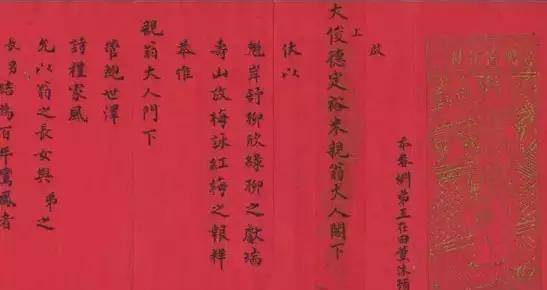 忝眷姻弟王在田薰沐頓
上
啟
大俊德定裕朱親翁大人閣下
伏以
魁岸舒柳欣綠柳之獻瑞
壽山放梅詠紅梅之報祥
恭惟
親翁大人門下
管鮑世澤
詩禮家風
允以翁之長女與弟之
長男結為百年鸞鳳者